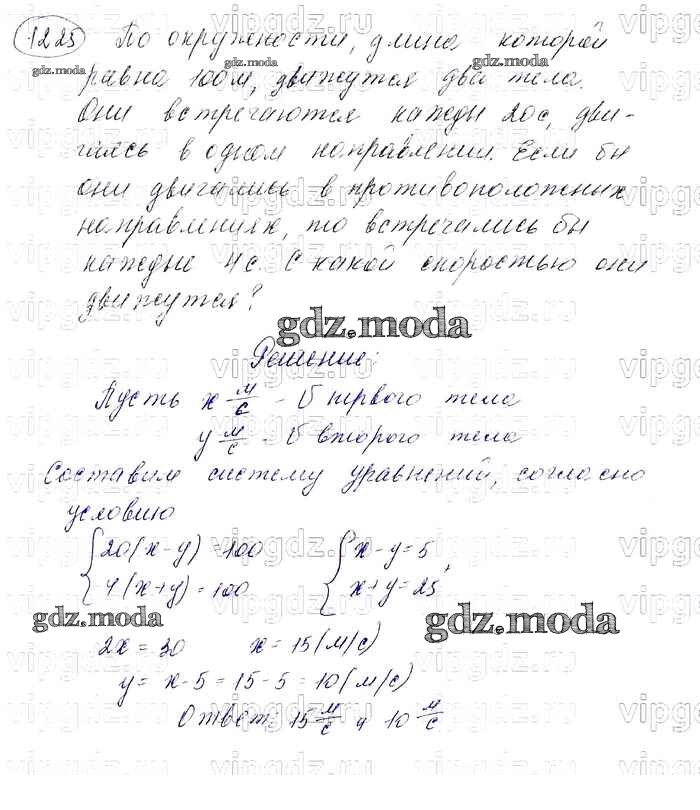 1225 По окружности, длина которой
равна 100м, движутся два тела.
Они встречаются каждые 20с, дви-
гаясь в одном направлении. Если бы
они двигались в противоположных
направлениях, то встречались бы
каждые 4с. С какой скоростью они
движутся?
gdz.moda
Решение:
Пусть x м/с - V первого тела
y м/с - V второго тела
Составим систему уравнений, согласно
условию
{20(x-y)=100 {x-y=5,
{4(x+y)=100 {x+y=25
gdz.moda gdz.moda
2x=30 x=15(м/с)
y=x-5=15-5=10(м/с)
Ответ: 15 м/с и 10 м/с
vipgdz.ru